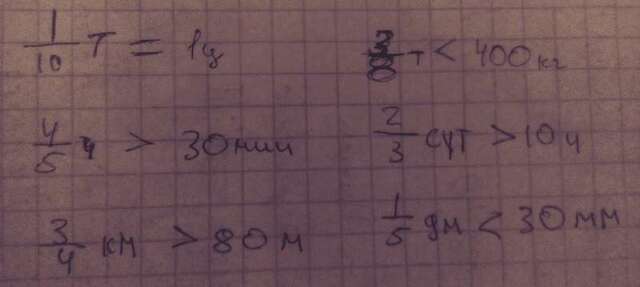 1/10 т = 1ц
3/8 т < 400кг
4/5 ч > 30мин
2/3 сут > 10ч
3/4 км > 80м
1/5 дм < 30мм